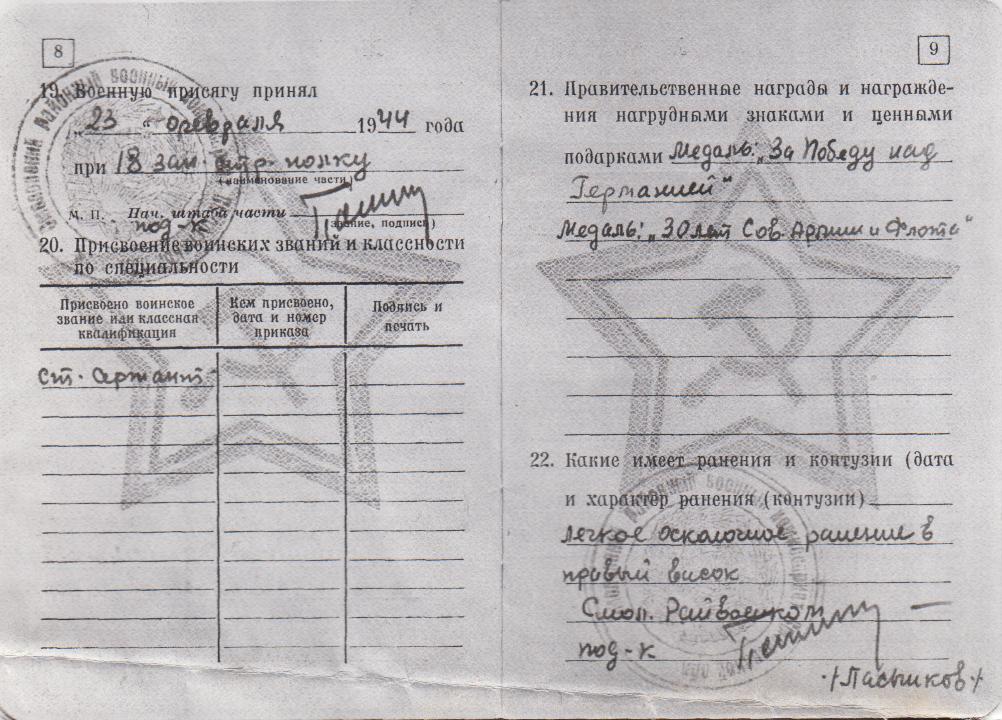 8
19. Военную присягу принял
„23 “ февраля 1944 года
при 18 зап. стр. полку
(наименование части)
М. П. Нач. штаба части
под-к
(звание, подпись)
20. Присвоение воинских званий и классности
по специальности
Присвоено воинское
звание или классная
квалификация
Кем присвоено,
дата и номер
приказа
Подпись и
печать
ст. сержант
9
21. Правительственные награды и награжде-
ния нагрудными знаками и ценными
подарками Медаль: „За Победу над
Германией“
Медаль: „30 лет Сов Армии и Флота“
22. Какие имеет ранения и контузии (дата
и характер ранения (контузии)
легкое осколочное ранение в
правый висок
Райвоенком
под-к